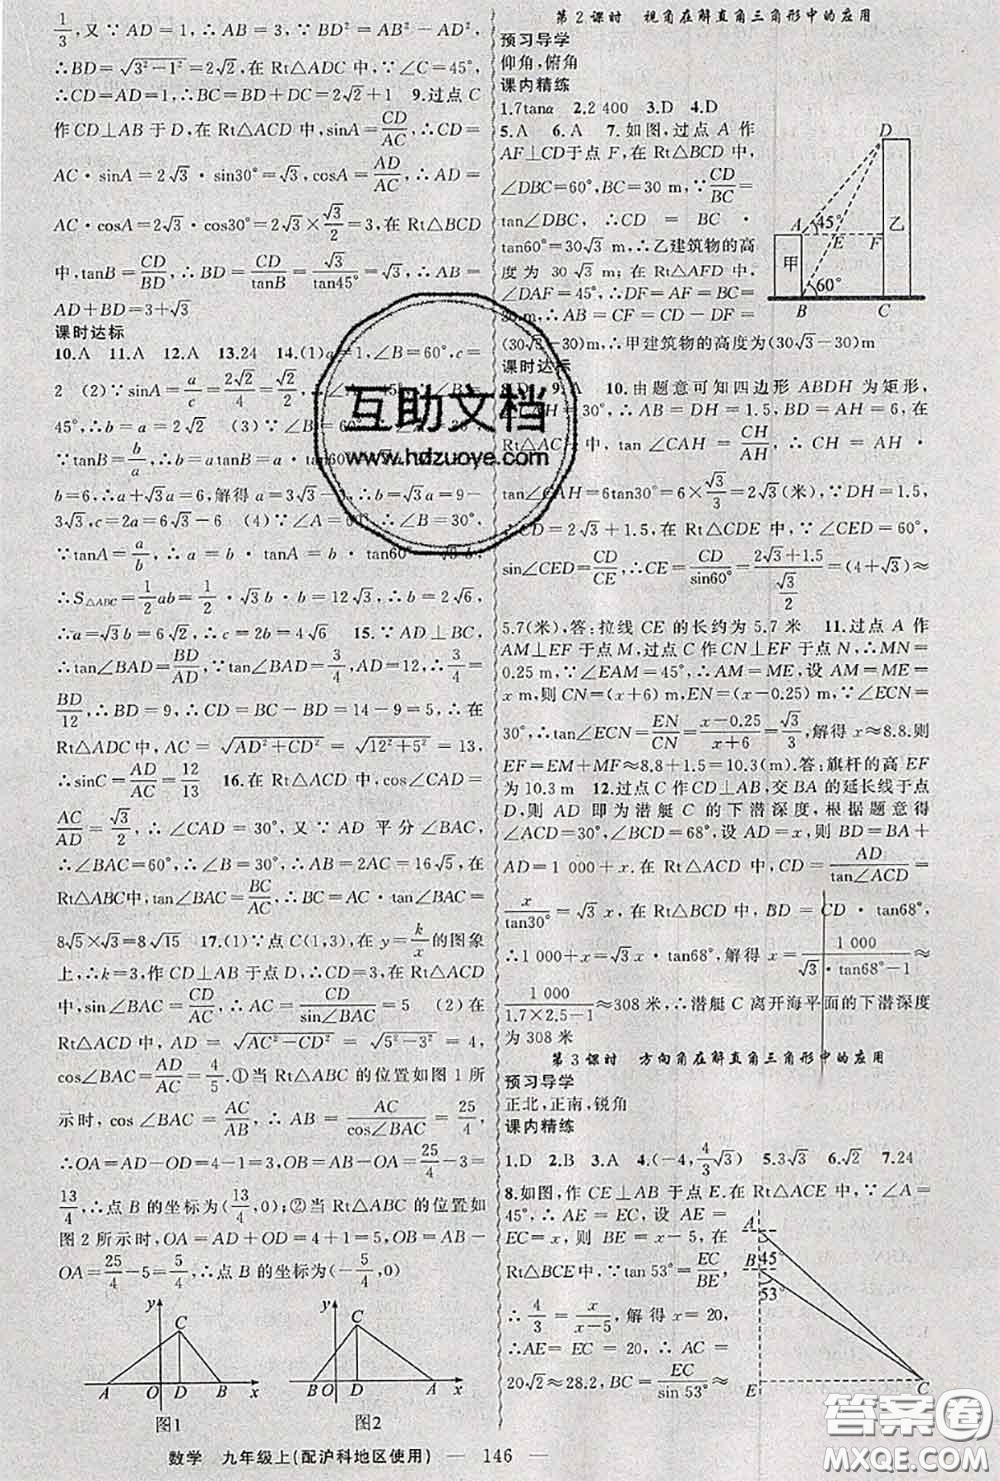 1/3,又∵AD=1,∴AB=3,∵BD²=AB²-AD²,
∴BD=√(3²-1²)=2√2,在Rt△ADC中,∵∠C=45°,
∴CD=AD=1,∴BC=BD+DC=2√2+1 9.过点C
作CD⊥AB于D,在Rt△ACD中,sinA=CD/AC,∴CD=
AC·sinA=2√3·sin30°=√3,cosA=AD/AC,∴AD=
AC·cosA=2√3·cos30°=2√3×√3/2=3,在Rt△BCD
中,tanB=CD/BD,∴BD=CD/tanB=√3/tan45°=√3,∴AB=
AD+BD=3+√3
课时达标
10.A 11.A 12.A 13.24 14.(1)a=1,∠B=60°,c=
2 (2)∵sinA=a/c=2√2/4=√2/2,∴∠A=
45°,∴b=a=2√2 (3)∵∠
∵tanB=b/a,∴b=a·tan
b=6,∴a+√3a=6,解得a=3√3-3,∴b=9-
3√3,c=2a=6√3-6 (4)∵∠A=60°,∴∠B=30°,
∵tanA=a/b,∴a=b·tanA=b·tan60°=√3b,
∴S△ABC=1/2ab=1/2·√3b·b=12√3,∴b=2√6,
∴a=√3b=6√2,∴c=2b=4√6 15.∵AD⊥BC,
∴tan∠BAD=BD/AD,∵tan∠BAD=3/4,AD=12,∴3/4=
BD/12,∴BD=9,∴CD=BC-BD=14-9=5,∴在
Rt△ADC中,AC=√(AD²+CD²)=√(12²+5²)=13,
∴sinC=AD/AC=12/13 16.在Rt△ACD中,cos∠CAD=
AC/AD=√3/2,∴∠CAD=30°,又∵AD平分∠BAC,
∴∠BAC=60°,∴∠B=30°,∴AB=2AC=16√5,在
Rt△ABC中,tan∠BAC=BC/AC,∴BC=AC·tan∠BAC=
8√5×√3=8√15 17.(1)∵点C(1,3),在y=k/x的图象
上,∴k=3,作CD⊥AB于点D,在Rt△ACD
中,sin∠BAC=CD/AC,∴AC=CD/sin∠BAC=5 (2)在
Rt△ACD中,AD=√(AC²-CD²)=√(5²-3²)=4,
cos∠BAC=AD/AC=4/5.①当Rt△ABC的位置如图1所
示时,cos∠BAC=AC/AB,∴AB=AC/cos∠BAC=25/4,
∴OA=AD-OD=4-1=3,OB=AB-OA=25/4-3=
13/4,∴点B的坐标为(13/4,0);②当Rt△ABC的位置如
图2所示时,OA=AD+OD=4+1=5,OB=AB-
OA=25/4-5=5/4,∴点B的坐标为(-5/4,0)
y C A O D B x
图1
y C B O D A x
图2
第2课时 视角在解直角三角形中的应用
预习导学
仰角,俯角
课内精练
1.7tanα 2.2 400 3.D 4.D
5.A 6.A 7.如图,过点A作
AF⊥CD于点F,在Rt△BCD中,
∠DBC=60°,BC=30 m,∵CD/BC=
tan∠DBC,∴CD=BC·
tan60°=30√3 m,∴乙建筑物的高
度为30√3 m;在Rt△AFD中,
∠DAF=45°,∴DF=AF=BC=
30 m,∴AB=CF=CD-DF=
(30√3-30)m,∴甲建筑物的高度为(30√3-30)m
D A 45° E F 乙 甲 60° B C
课时达标
8.D 9.A 10.由题意可知四边形ABDH为矩形,
=30°,∴AB=DH=1.5,BD=AH=6,在
Rt△AC 中,tan∠CAH=CH/AH,∴CH=AH·
tan∠CAH=6tan30°=6×√3/3=2√3(米),∵DH=1.5,
∴CD=2√3+1.5,在Rt△CDE中,∵∠CED=60°,
sin∠CED=CD/CE,∴CE=CD/sin60°=(2√3+1.5)/(√3/2)=(4+√3)≈
5.7(米),答:拉线CE的长约为5.7米 11.过点A作
AM⊥EF于点M,过点C作CN⊥EF于点N,∴MN=
0.25 m,∵∠EAM=45°,∴AM=ME,设AM=ME=
x m,则CN=(x+6)m,EN=(x-0.25)m,∵∠ECN=
30°,∴tan∠ECN=EN/CN=(x-0.25)/(x+6)=√3/3,解得x≈8.8.则
EF=EM+MF≈8.8+1.5=10.3(m).答:旗杆的高EF
为10.3 m 12.过点C作CD⊥AB,交BA的延长线于点
D,则AD即为潜艇C的下潜深度,根据题意得
∠ACD=30°,∠BCD=68°,设AD=x,则BD=BA+
AD=1 000+x.在Rt△ACD中,CD=AD/tan∠ACD=
x/tan30°=√3x,在Rt△BCD中,BD=CD·tan68°,
∴1 000+x=√3x·tan68°,解得x=1 000/(√3·tan68°-1)≈
1 000/(1.7×2.5-1)≈308米,∴潜艇C离开海平面的下潜深度
为308米
第3课时 方向角在解直角三角形中的应用
预习导学
正北,正南,锐角
课内精练
1.D 2.B 3.A 4.(-4,4/3√3) 5.3√3 6.√2 7.24
8.如图,作CE⊥AB于点E.在Rt△ACE中,∵∠A=
45°,∴AE=EC,设AE=
EC=x,则BE=x-5,在
Rt△BCE中,∵tan 53°=EC/BE,
∴4/3=x/(x-5),解得x=20,
∴AE=EC=20,∴AC=
20√2≈28.2,BC=EC/sin 53°≈
A 45° B 53° E C
数学 九年级上(配沪科地区使用) — 146 —
互助文档
www.hdzuoye.com
答案卷
MXQE.COM